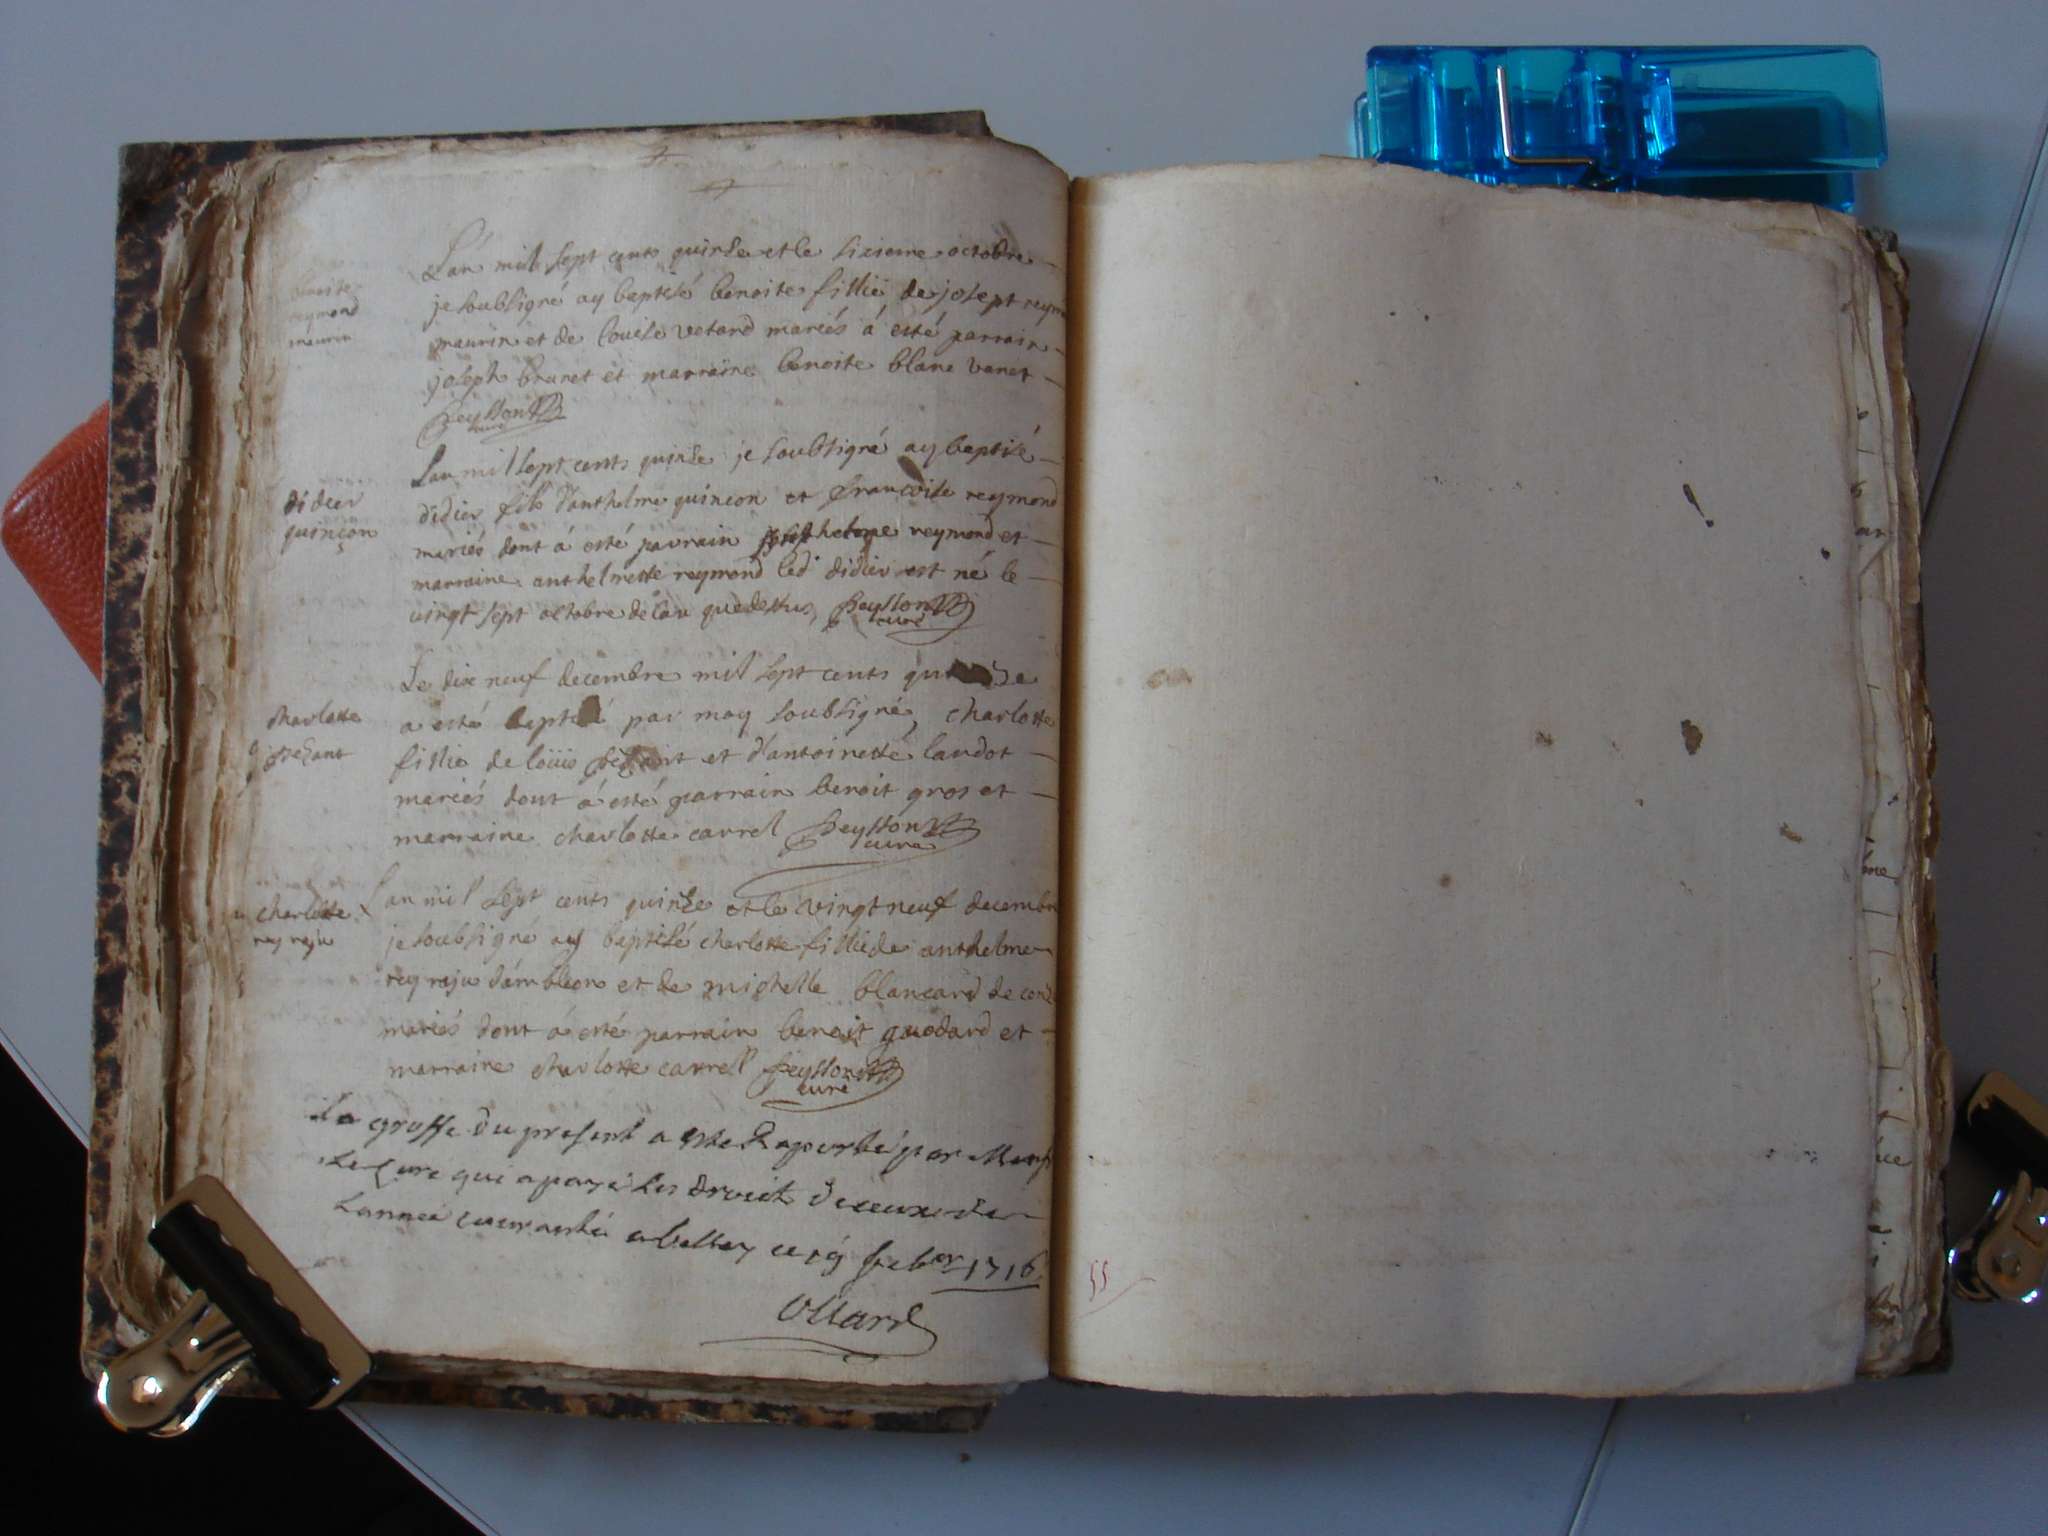 benoite
reymond
maurin
L'an mil sept cents quinse et le sixieme octobre
je soubsigné ay baptisé benoite fillie de josept reymond
maurin et de louise vetard mariés á esté parrain
joseph brunet et marraine benoite blanc vanet
peysson
curé
didier
quinçon
L'an mil sept cents quinse je soubsigné ay baptisé
didier fils d'anthelme quincon et francoise reymond
mariés dont á esté parrain reymond et
marraine anthelmette reymond led didier est né le
vingt sept octobre de l'an que dessus, peysson
curé
charlotte
Le dix neuf decembre mil sept cents
a esté baptisé par moy soubsigné, charlotte
fillie de loüis et d'antoinette landot
mariés dont á esté parrain benoit gros et
marraine charlotte carrel peysson
curé
charlotte
rey raju
L'an mil sept cents quinse et le vingt neuf decembre
je soubsigné ay baptisé charlotte fillie de anthelme
rey raju d'ambleon et de michelle blancard de
mariés dont á esté parrain benoit guodard et
marraine charlotte carrell peysson
curé
La grosse du present a esté Raporté par
Le Curé qui a payé les droit de
L'année courante a belley ce 19 1716
Ollard
55